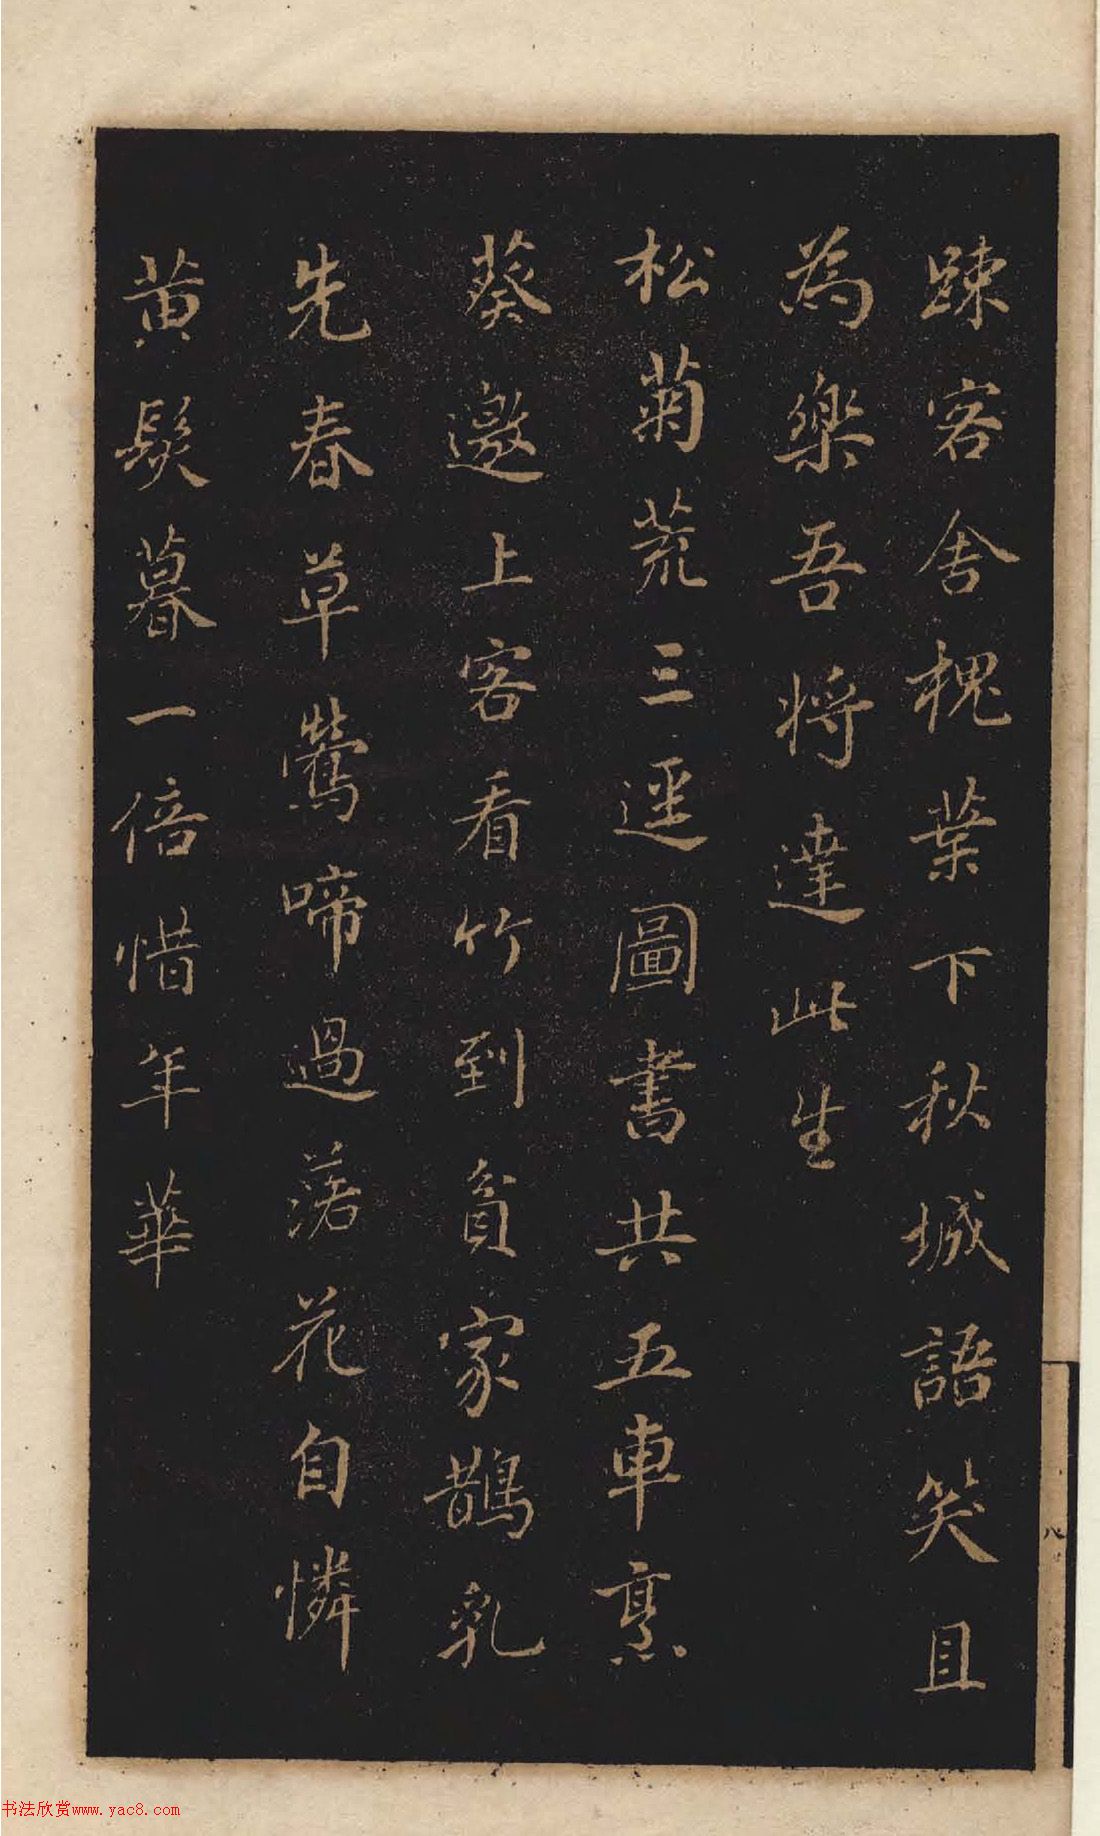 踈客舎槐葉下秋城語笑且
為樂吾将達此生
松菊荒三逕圖書共五車烹
葵邀上客看竹到貧家鵲乳
先春草鶯啼過落花自憐
黄髮暮一倍惜年華
八
书法欣赏www.yac8.com